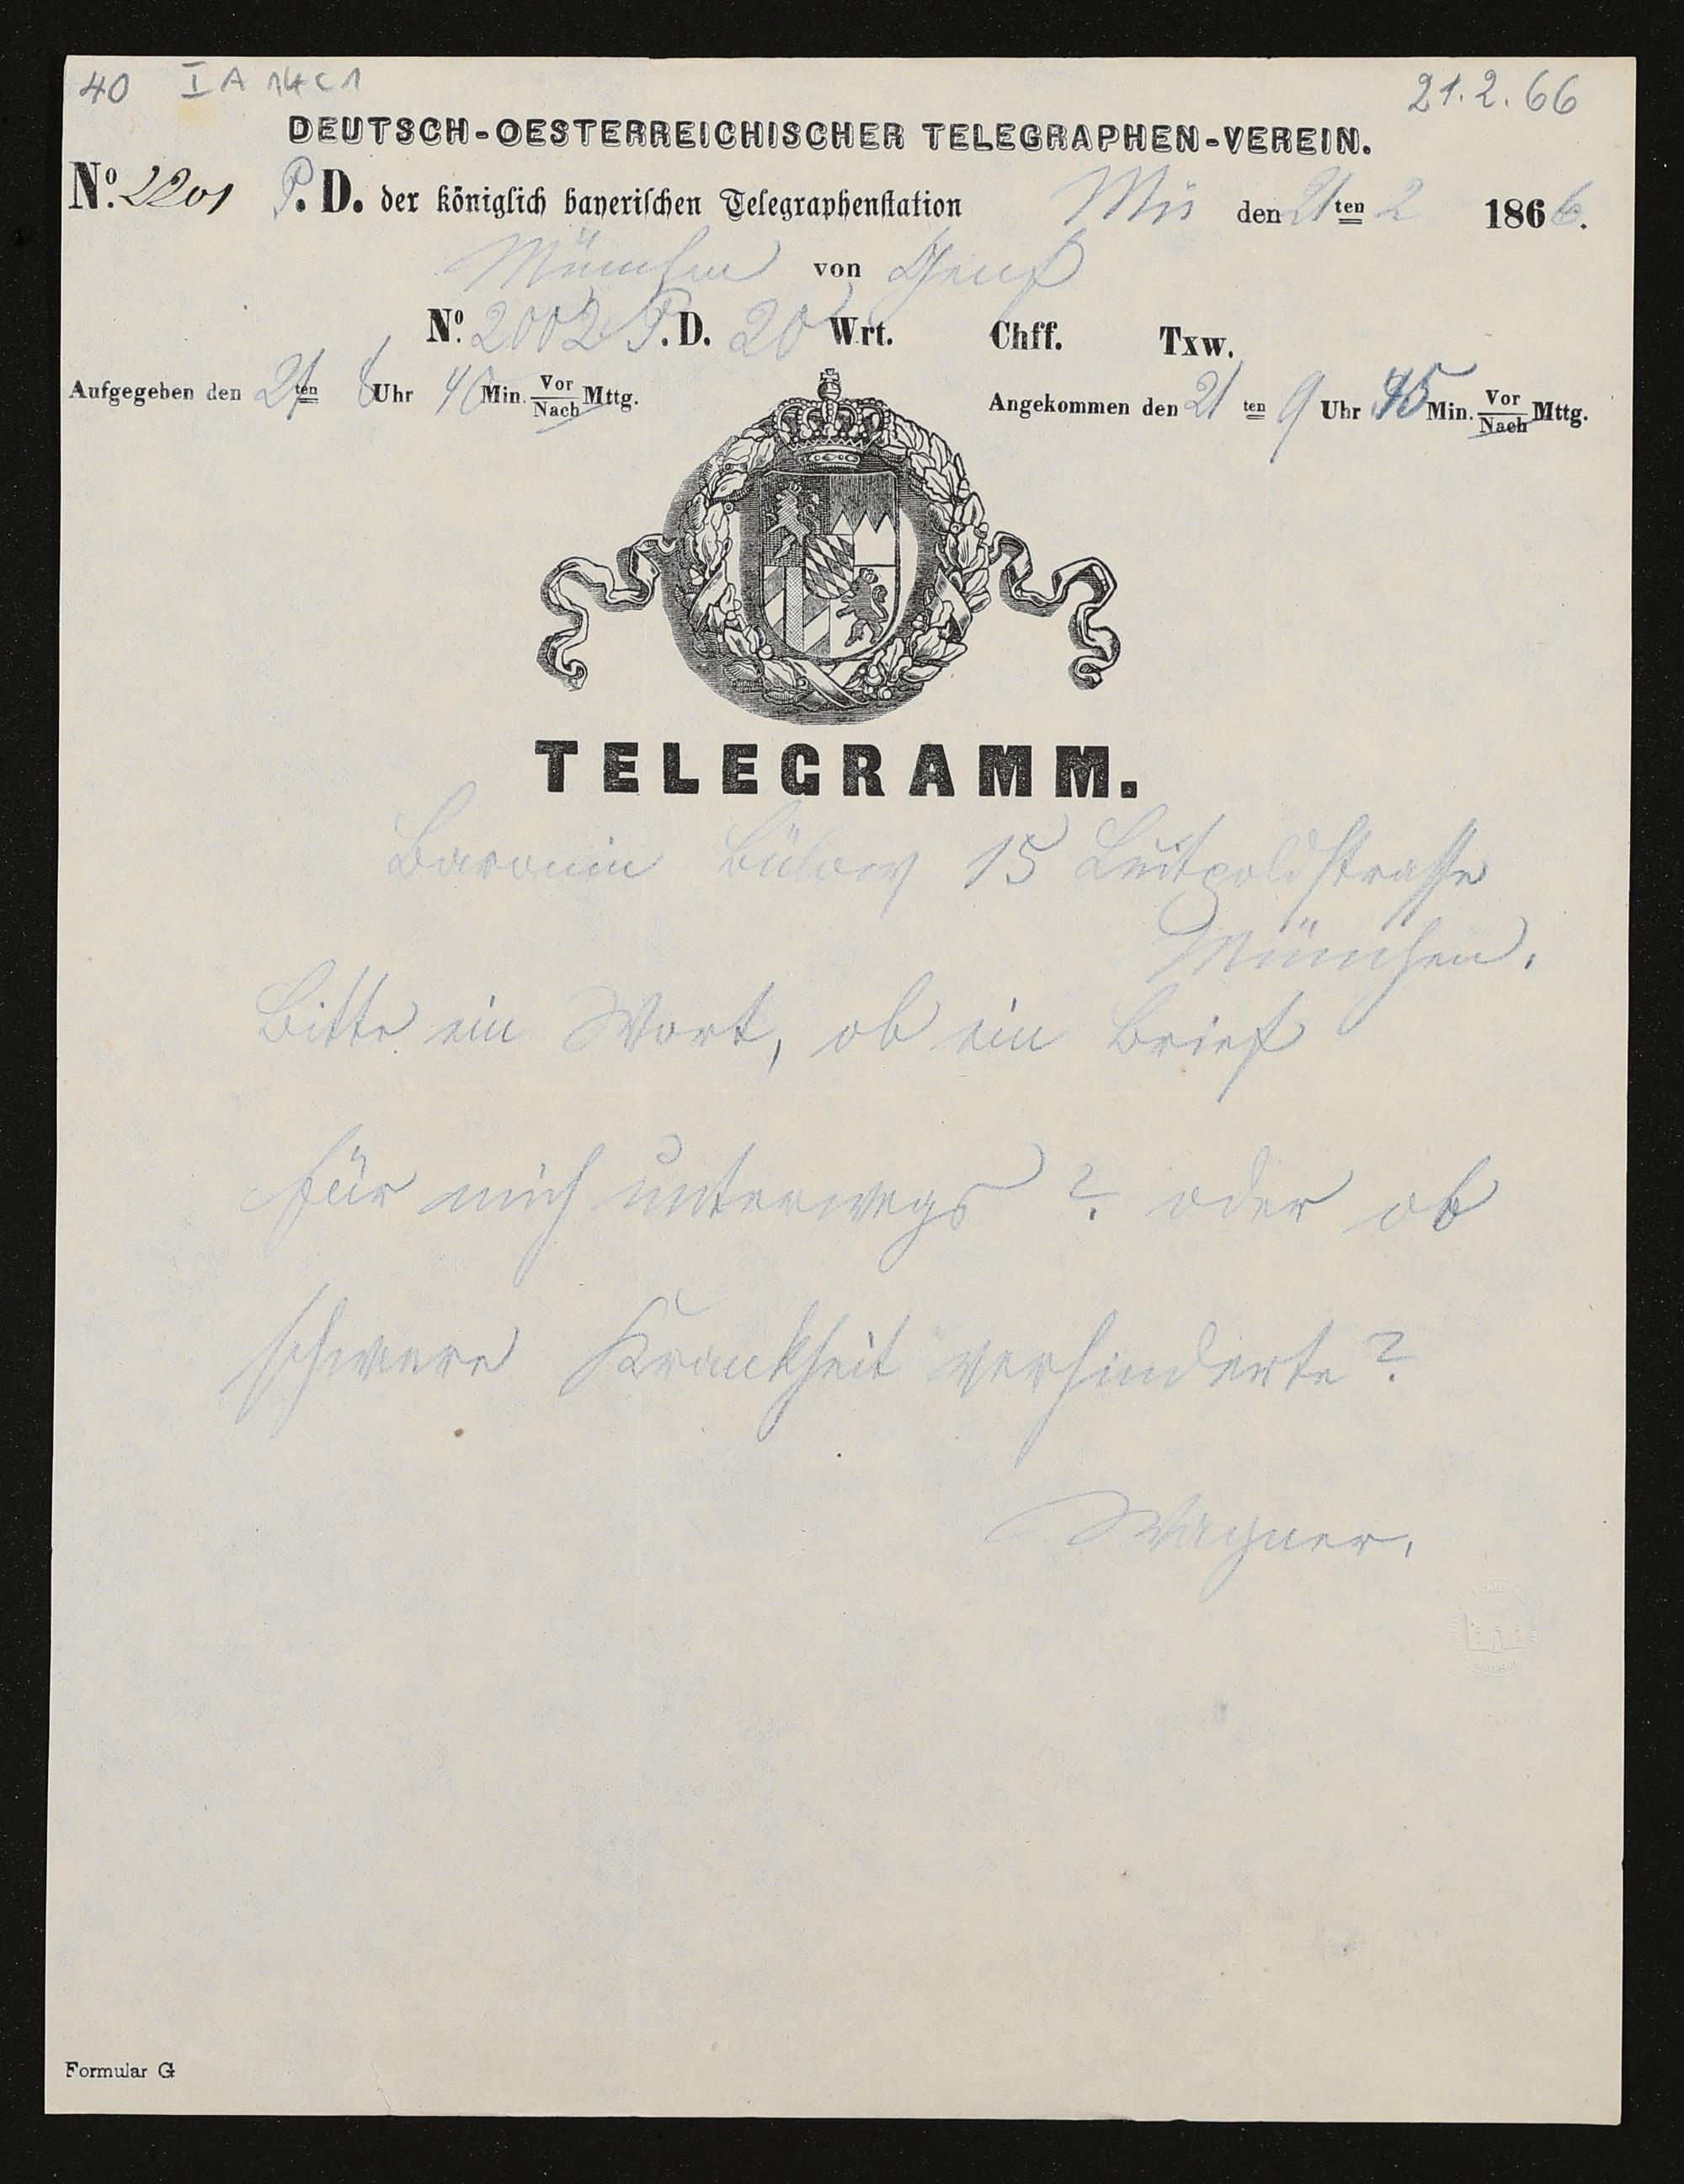 40 I A 14 c 1 21.2.66
DEUTSCH-OESTERREICHISCHER TELEGRAPHEN-VEREIN.
Nº. 2201 P. D. der königlich bayerischen Telegraphenstation Mü den 21ten 2 1866.
München von Genf
Nº 2002 P. D. 20 Wrt. Chff. Txw.
Aufgegeben den 21ten 8 Uhr 40 Min. Vor/Nach Mttg. Angekommen den 21ten 9 Uhr 45 Min. Vor/Nach Mttg.
TELEGRAMM.
Baronin Bülow 15 Luitpoldstrasse
München.
Bitte ein Wort, ob ein Brief
für mich unterwegs? oder ob
schwere Krankheit verhinderte?
Wagner.
Formular G